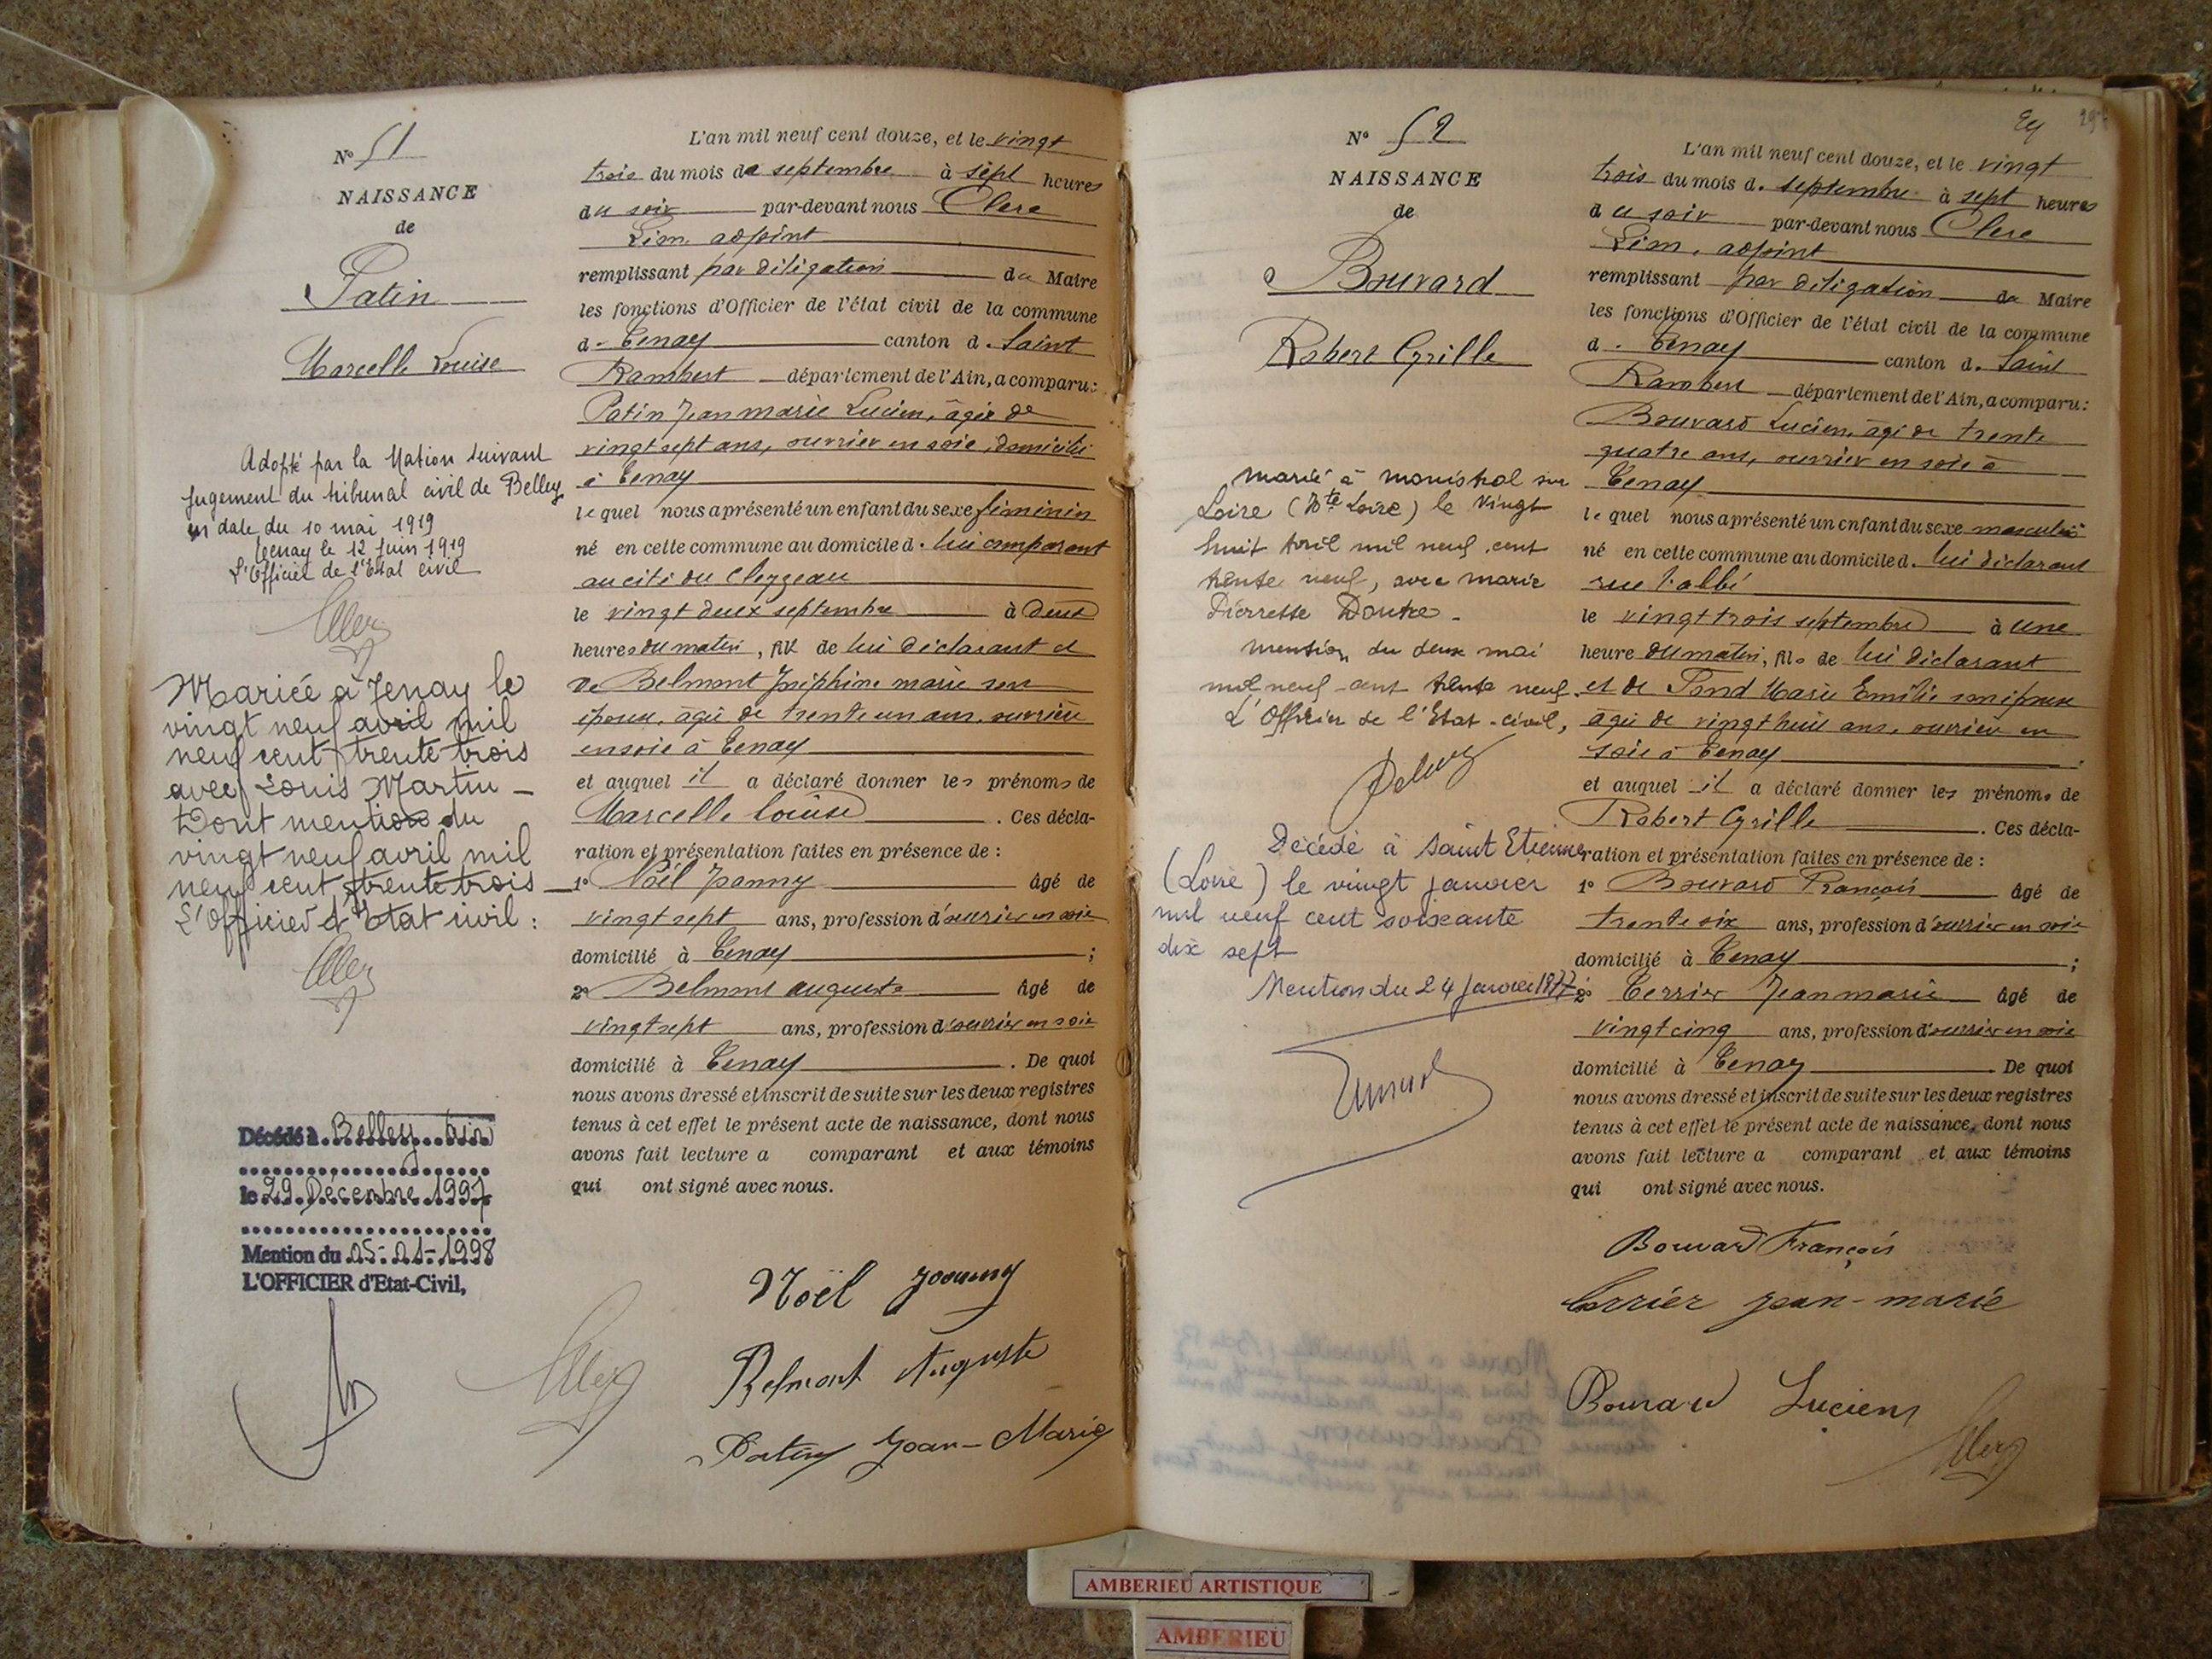 N° 51
NAISSANCE
de
Patin
Marcelle Louise
Adopté par la Nation suivant
jugement du tribunal civil de Belley
en date du 10 mai 1919
Tenay le 12 Juin 1919
L'Officier de l'Etat civil
Mariée à Tenay le
vingt neuf avril mil
neuf cent trente trois
avec Louis Martin –
Dont mention du
vingt neuf avril mil
neuf cent trente trois –
L'Officier d'Etat civil :
Décédé à Belley
le 29 Décembre 1997
Mention du 05-01-1998
L'OFFICIER d'Etat-Civil,
L'an mil neuf cent douze, et le vingt
trois du mois de septembre à sept heures
du soir par-devant nous Clerc
adjoint
remplissant par déligation du Maire
les fonctions d'Officier de l'état civil de la commune
d. Tenay canton d. Saint
Rambert département de l'Ain, a comparu :
Patin Jean marie Lucien, âgé de
vingt sept ans, ouvrier en soie, domicilié
à Tenay
lequel nous a présenté un enfant du sexe féminin
né en cette commune au domicile d. lui comparant
au cité du Clezzeau
le vingt deux septembre à deux
heures du matin, fille de lui déclarant et
de Belmont Joséphine marie son
épouse, âgée de trente un ans, ouvrière
en soie à Tenay
et auquel il a déclaré donner les prénoms de
Marcelle Louise . Ces décla-
ration et présentation faites en présence de :
1° Noël Joanny âgé de
vingt sept ans, profession d'ouvrier en soie
domicilié à Tenay ;
2° Belmont auguste âgé de
vingt sept ans, profession d'ouvrier en soie
domicilié à Tenay . De quoi
nous avons dressé et inscrit de suite sur les deux registres
tenus à cet effet le présent acte de naissance, dont nous
avons fait lecture a comparant et aux témoins
qui ont signé avec nous.
Noël Joanny
Belmont Auguste
Patin Jean-Marie
29
N° 52
NAISSANCE
de
Bouvard
Robert Cyrille
marié à monistrol sur
Loire (Hte Loire) le vingt
huit Avril mil neuf cent
trente neuf, avec marie
Pierrette Doutre.
mention du deux mai
mil neuf cent trente neuf.
L'Officier de l'Etat-civil,
Décédé à Saint Etienne
(Loire) le vingt janvier
mil neuf cent soixante
dix sept
Mention du 24 Janvier 1977
L'an mil neuf cent douze, et le vingt
trois du mois d. septembre à sept heures
du soir par-devant nous Clerc
adjoint
remplissant par déligation du Maire
les fonctions d'Officier de l'état civil de la commune
d. Tenay canton d. Saint
Rambert département de l'Ain, a comparu :
Bouvard Lucien, âgé de trente
quatre ans, ouvrier en soie à
Tenay
lequel nous a présenté un enfant du sexe masculin
né en cette commune au domicile d. lui déclarant
rue l'abbé
le vingt trois septembre à une
heure du matin, fils de lui déclarant
et de Pond Marie Emélie son épouse
âgée de vingt huit ans, ouvrière en
soie à Tenay
et auquel il a déclaré donner les prénoms de
Robert Cyrille . Ces décla-
ration et présentation faites en présence de :
1° Bouvard François âgé de
trente six ans, profession d'ouvrier en soie
domicilié à Tenay ;
2° Terrier Jean marie âgé de
vingt cinq ans, profession d'ouvrier en soie
domicilié à Tenay . De quoi
nous avons dressé et inscrit de suite sur les deux registres
tenus à cet effet le présent acte de naissance, dont nous
avons fait lecture a comparant et aux témoins
qui ont signé avec nous.
Bouvard François
Terrier jean-marie
Bouvard Lucien
AMBERIEU ARTISTIQUE
AMBERIEU